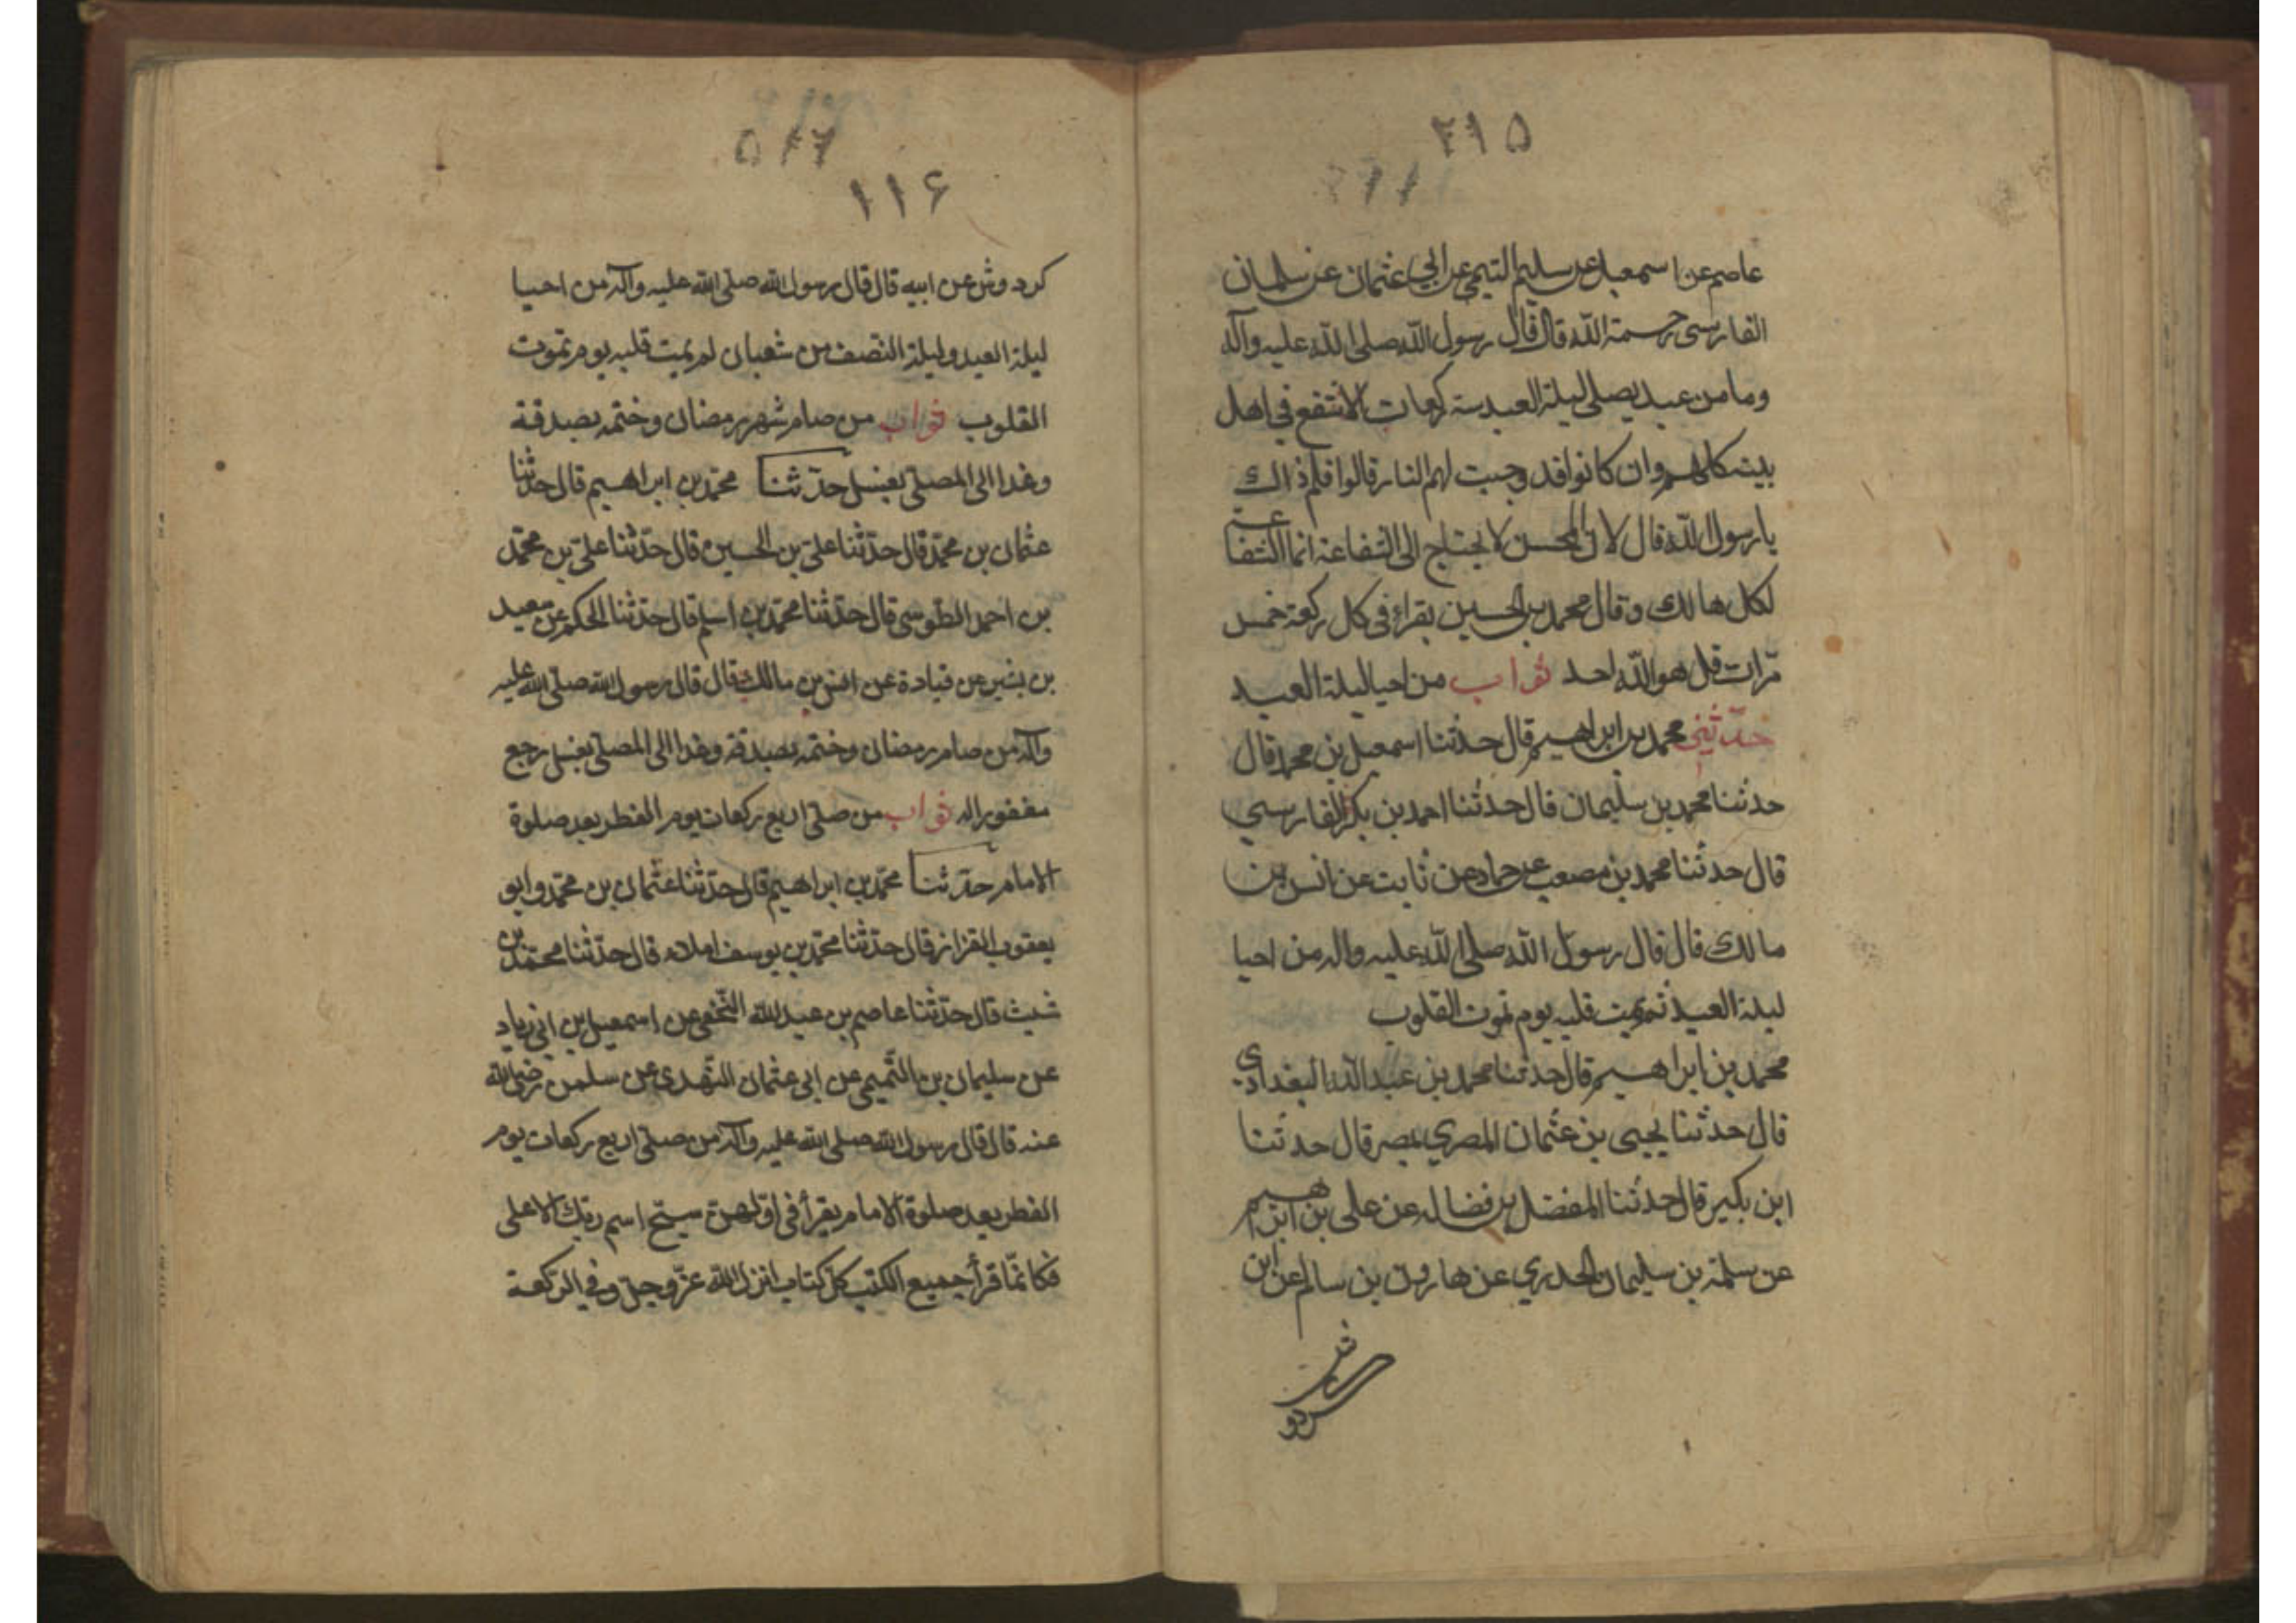 ۲۱۵
عاصم عن اسمعيل عن سليم التيمي عن ابي عثمان عن سلمان
الفارسي رحمة الله قال قال رسول الله صلى الله عليه وآله
وما من عبد يصلى ليلة العيد ستة ركعات الا شفع في اهل
بيته كلهم وان كانوا قد وجبت لهم النار قالوا فلم ذالك
يا رسول الله قال لان المحسن لا يحتاج الى الشفاعة انما الشفاعة
لكل هالك وقال محمد بن الحسين يقراء في كل ركعة خمس
مرّات قل هو الله احد ثواب من احيا ليلة العيد
حدّثنى محمد بن ابراهيم قال حدثنا اسمعيل بن محمد قال
حدثنا محمد بن سليمان قال حدثنا احمد بن بكر الفارسي
قال حدثنا محمد بن مصعب عن حماد عن ثابت عن انس بن
مالك قال قال رسول الله صلى الله عليه واله من احيا
ليلة العيد لم يمت قلبه يوم تموت القلوب
محمد بن ابراهيم قال حدثنا محمد بن عبد الله البغدادي
قال حدثنا يحيى بن عثمان المصري بمصر قال حدثنا
ابن بكير قال حدثنا المفضل بن فضاله عن على بن ابراهيم
عن سلمة بن سليمان الجدري عن هارون بن سالم عن ابن
كردوش
۱۱۶
كردوش عن ابيه قال قال رسول الله صلّى الله عليه وآله من احيا
ليلة العيد وليلة النصف من شعبان لم يمت قلبه يوم تموت
القلوب ثواب من صام شهر رمضان وختمه بصدقة
وغدا الى المصلّى بغسل حدّثنا محمّد بن ابراهيم قال حدّثنا
عثمان بن محمّد قال حدّثنا علىّ بن الحسين قال حدّثنا علىّ بن محمّد
بن احمد الطوسى قال حدّثنا محمّد بن اسلم قال حدّثنا الحكم عن سعيد
بن بشير عن قتادة عن انس بن مالك قال قال رسول الله صلّى الله عليه
وآله من صام رمضان وختمه بصدقة وغدا الى المصلّى بغسل رجع
مغفورا له ثواب من صلّى اربع ركعات يوم الفطر بعد صلوة
الامام حدّثنا محمّد بن ابراهيم قال حدّثنا عثمان بن محمّد وابو
يعقوب القزاز قال حدّثنا محمّد بن يوسف املاء قال حدّثنا محمّد بن
شبث قال حدّثنا عاصم بن عبد الله النّخعى عن اسمعيل بن ابى زياد
عن سليمان بن التّميمى عن ابى عثمان النّهدى عن سلمن رضى الله
عنه قال قال رسول الله صلى الله عليه وآله من صلّى اربع ركعات يوم
الفطر بعد صلوة الامام يقرأ فى اوّلهنّ سبّح اسم ربّك الاعلى
فكانّما قرأ جميع الكتب كلّ كتاب انزل الله عزّ وجلّ وفى الركعة